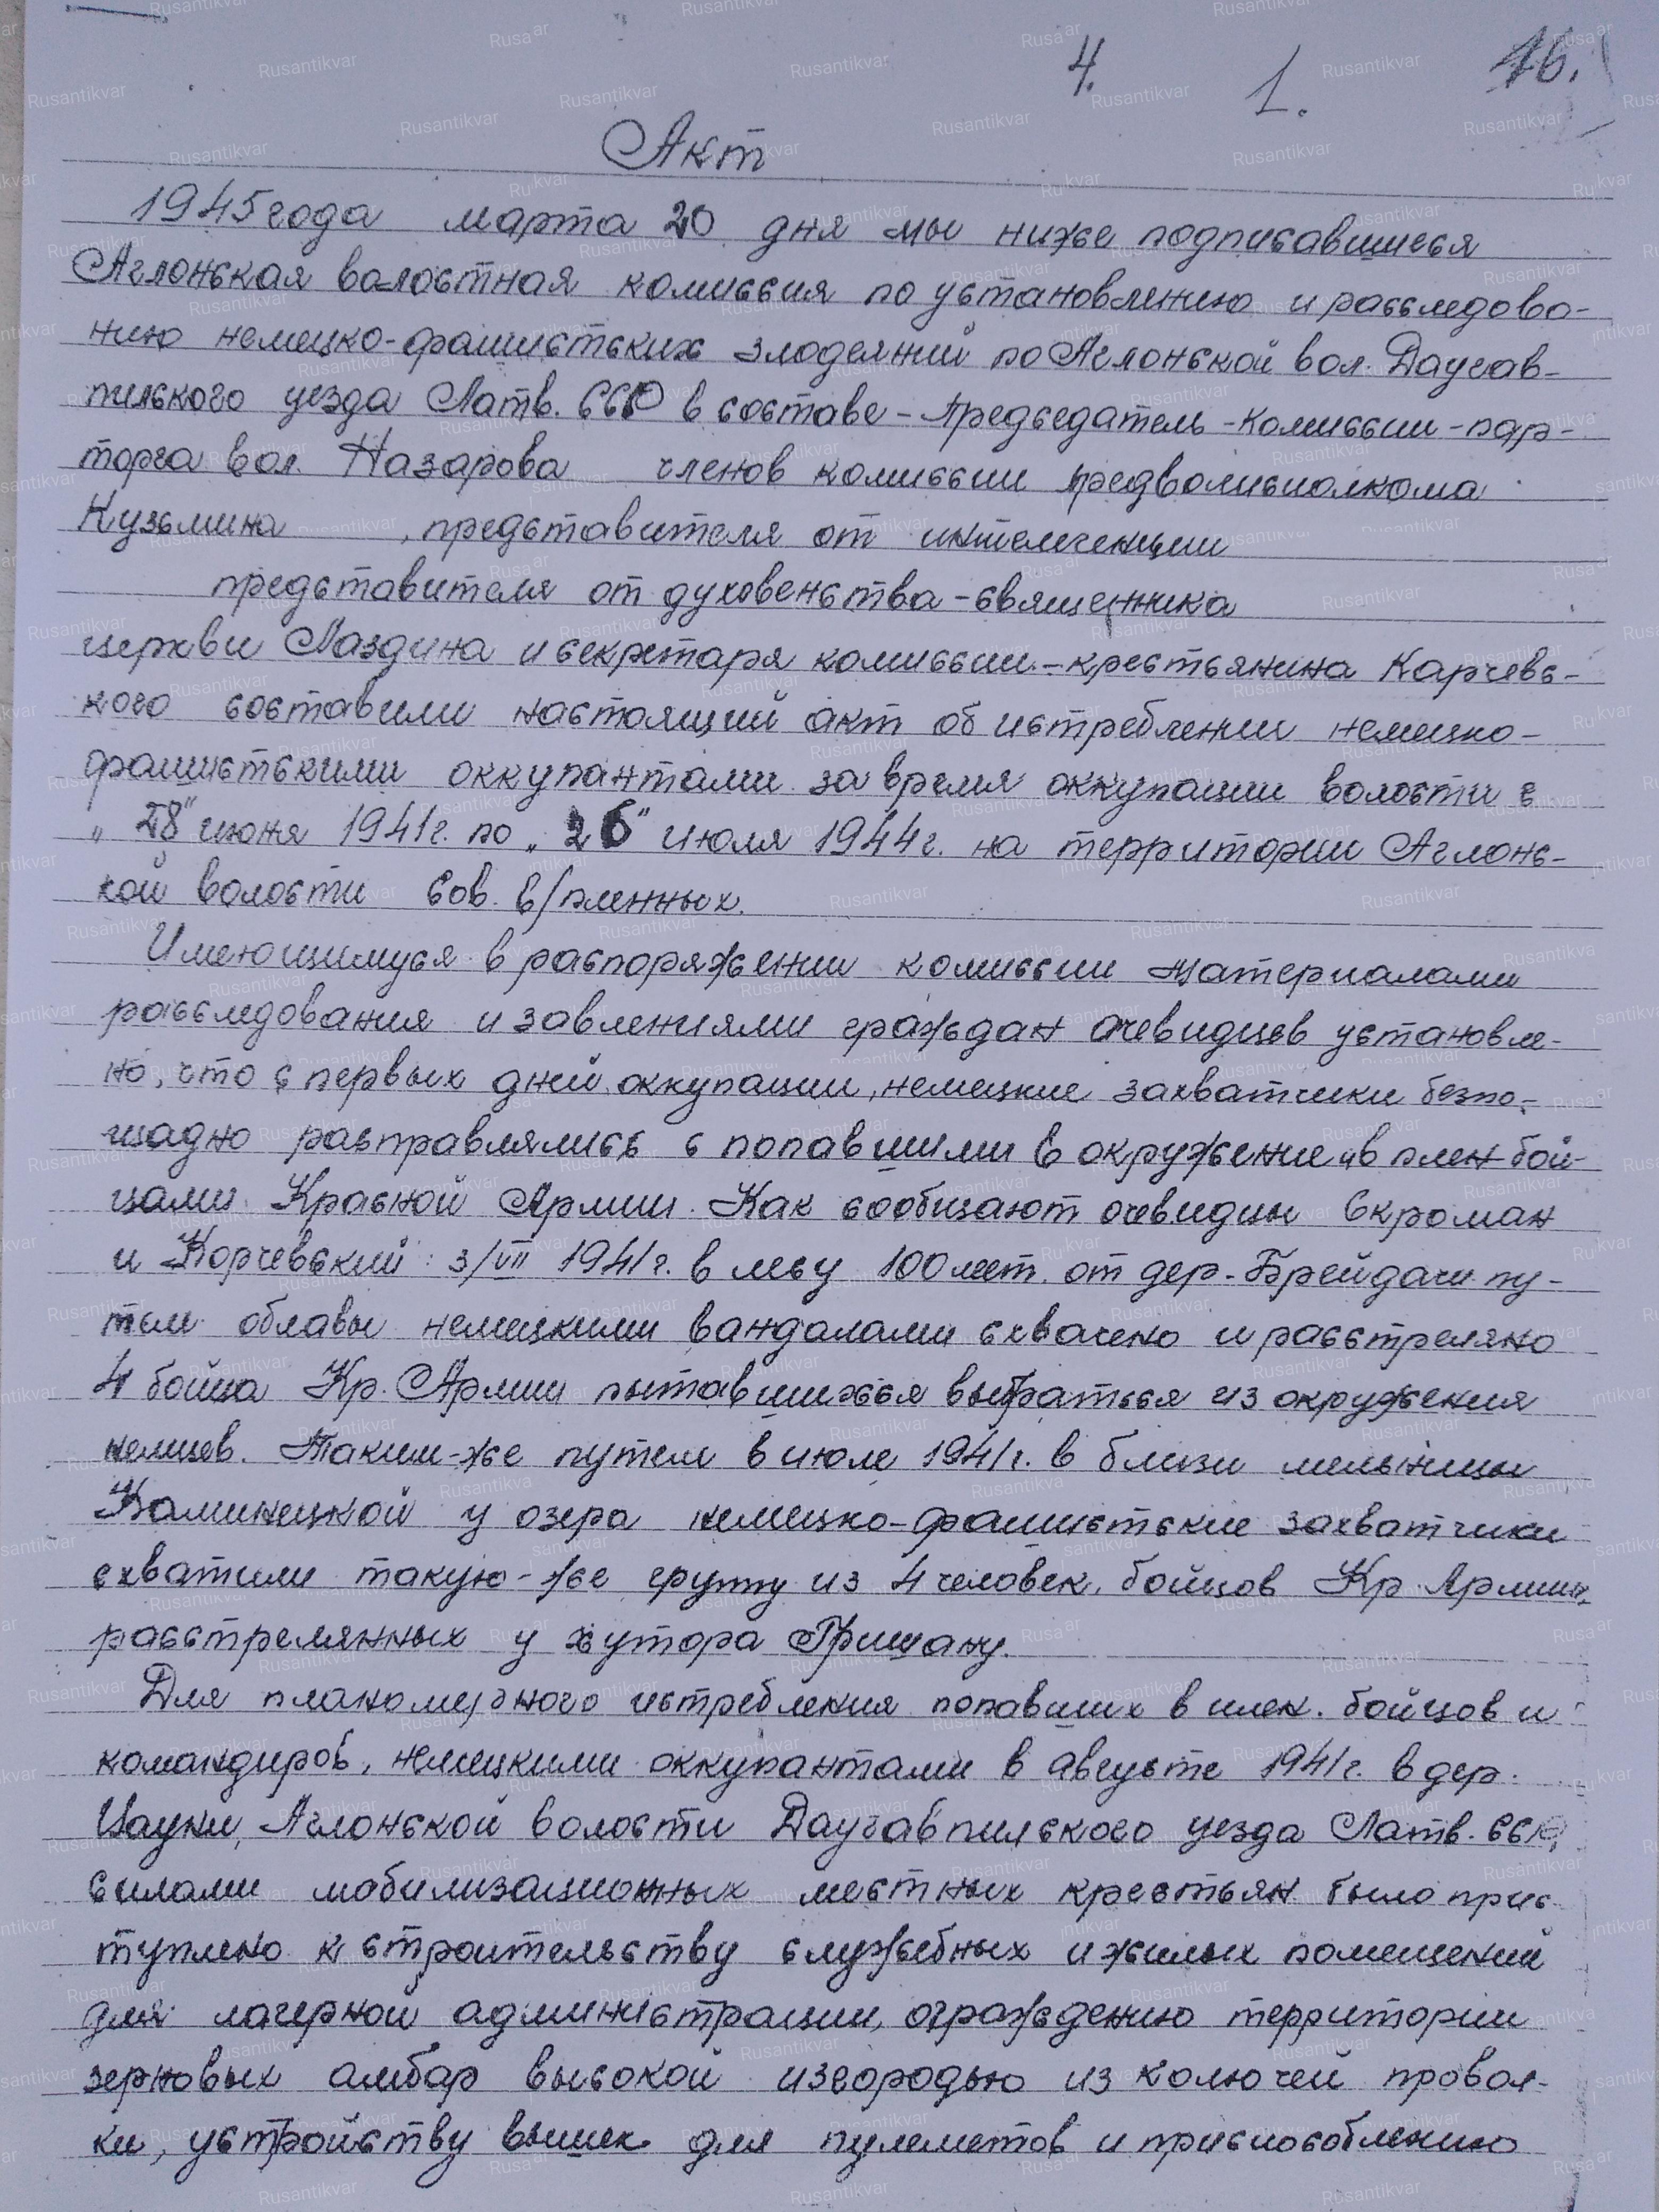 4. 1. 16.
Акт
1945 года марта 20 дня мы ниже подписавшиеся
Аглонская валостная комиссия по установлению и расследова-
нию немецко-фашистских злодеяний по Аглонской вол. Даугав-
пилького уезда Латв. ССР в составе - председатель - комиссии - пар-
торга вол. Назарова членов комиссии предволисполкома
Кузьмина , представителя от интелегенции
представителя от духовенства - священника
церкви Лаздина и секретаря комиссии - крестьянина Карчевс-
кого составили настоящий акт об истреблении немецко-
фашистскими оккупантами за время оккупации волости с
„28" июня 1941 г. по „26" июля 1944 г. на территории Аглонс-
кой волости Сов. в/пленных.
Имеющимуся в распоряжении комиссии материалами
расследования и завлениями граждан очевидцев установле-
но, что с первых дней оккупации, немецкие захватчики безпо-
щадно расправлялись с попавшими в окружение и в плен бой-
цами Красной Армии. Как сообщают очевидцы Скроман
и Корчевский : 3/VII 1941 г. в лесу 100 мет. от дер. Брейдаки пу-
тем облавы немецкими вандалами схвачено и расстреляно
4 бойца Кр. Армии пытавшихся выбраться из окружения
немцев. Таким-же путем в июле 1941 г. в близи мельницы
Каминецкой у озера немецко-фашистские захватчики
схватили такую-же группу из 4 человек, бойцов Кр. Армии,
расстрелянных у хутора Гришану.
Для планомерного истребления попавших в плен. бойцов и
командиров, немецкими оккупантами в августе 1941 г. в дер.
Цауни, Аглонской волости Даугавпилского уезда Латв. ССР,
силами мобилизационных местных крестьян было прис
туплено к строительству служебных и жилых помещений
для лагерной администрации, ограждению территории
зерновых амбар высокой изгородью из колючей провол-
ки, устройству вышек для пулеметов и приспособлению